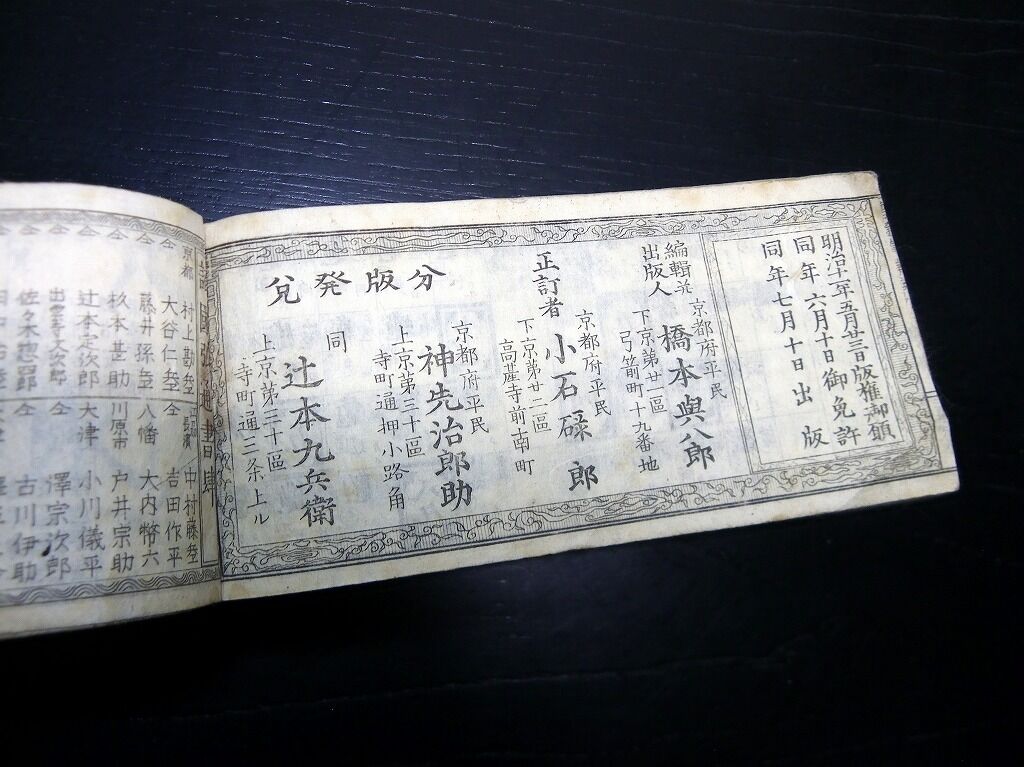 明治十一年五月廿三日版権御願
同年六月十日御免許
同年七月十日出版
編輯并
出版人
京都府平民
橋本與八郎
下京第廿區
弓箭町十九番地
正訂者
京都府平民
小石碌郎
下京第廿二區
高䑓寺前南町
分版発兌
京都府平民
神先治郎助
上京第三十區
寺町通押小路角
同
辻本九兵衛
上京第三十區
寺町通二条上ル
書肆
京都
村上勘兵衛
中村藤兵衛
仝
大谷仁兵衛
仝
吉田作平
仝
藤井孫兵衛
八幡
大内幣六
仝
杦本甚助
川原市
戸井宗助
仝
辻本定次郎
大津
小川儀平
仝
出雲寺文次郎
仝
澤宗次郎
仝
佐々木惣四郎
仝
古川伊助